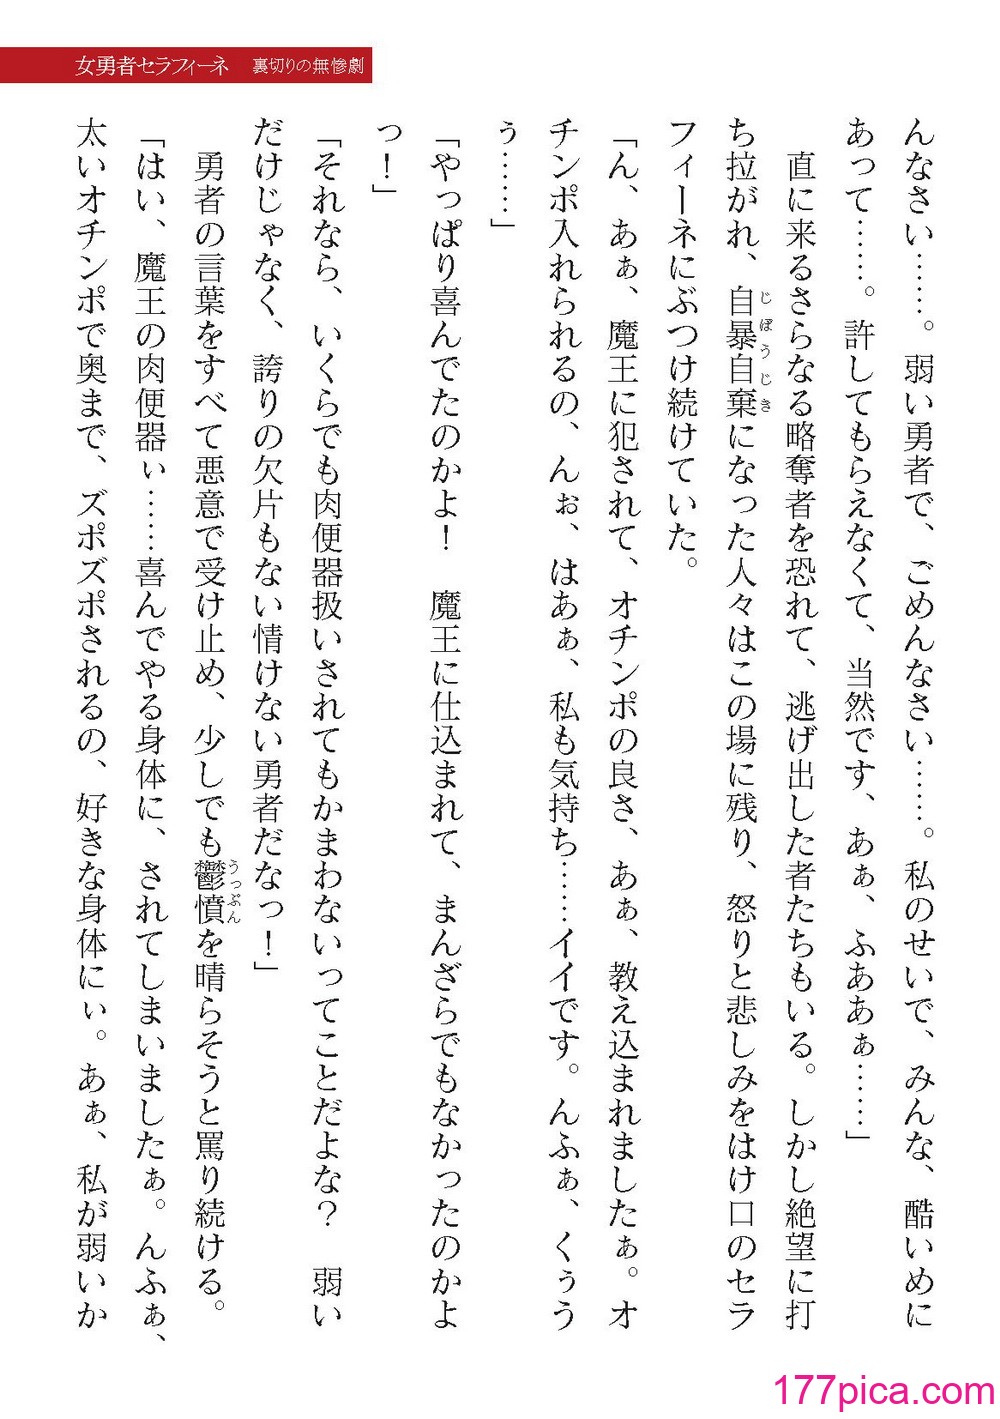 女勇者セラフィーネ 裏切りの無惨劇
んなさい……。弱い勇者で、ごめんなさい……。私のせいで、みんな、酷いめに
あって……。許してもらえなくて、当然です、あぁ、ふああぁ……」
　直に来るさらなる略奪者を恐れて、逃げ出した者たちもいる。しかし絶望に打
ち拉がれ、自暴自棄になった人々はこの場に残り、怒りと悲しみをはけ口のセラ
じぼうじき
フィーネにぶつけ続けていた。
「ん、あぁ、魔王に犯されて、オチンポの良さ、あぁ、教え込まれましたぁ。オ
チンポ入れられるの、んぉ、はあぁ、私も気持ち……イイです。んふぁ、くぅう
ぅ……」
「やっぱり喜んでたのかよ！　魔王に仕込まれて、まんざらでもなかったのかよ
っ！」
「それなら、いくらでも肉便器扱いされてもかまわないってことだよな？　弱い
だけじゃなく、誇りの欠片もない情けない勇者だなっ！」
　勇者の言葉をすべて悪意で受け止め、少しでも鬱憤を晴らそうと罵り続ける。
うっぷん
「はい、魔王の肉便器ぃ……喜んでやる身体に、されてしまいましたぁ。んふぁ、
太いオチンポで奥まで、ズポズポされるの、好きな身体にぃ。あぁ、私が弱いか
177pica.com